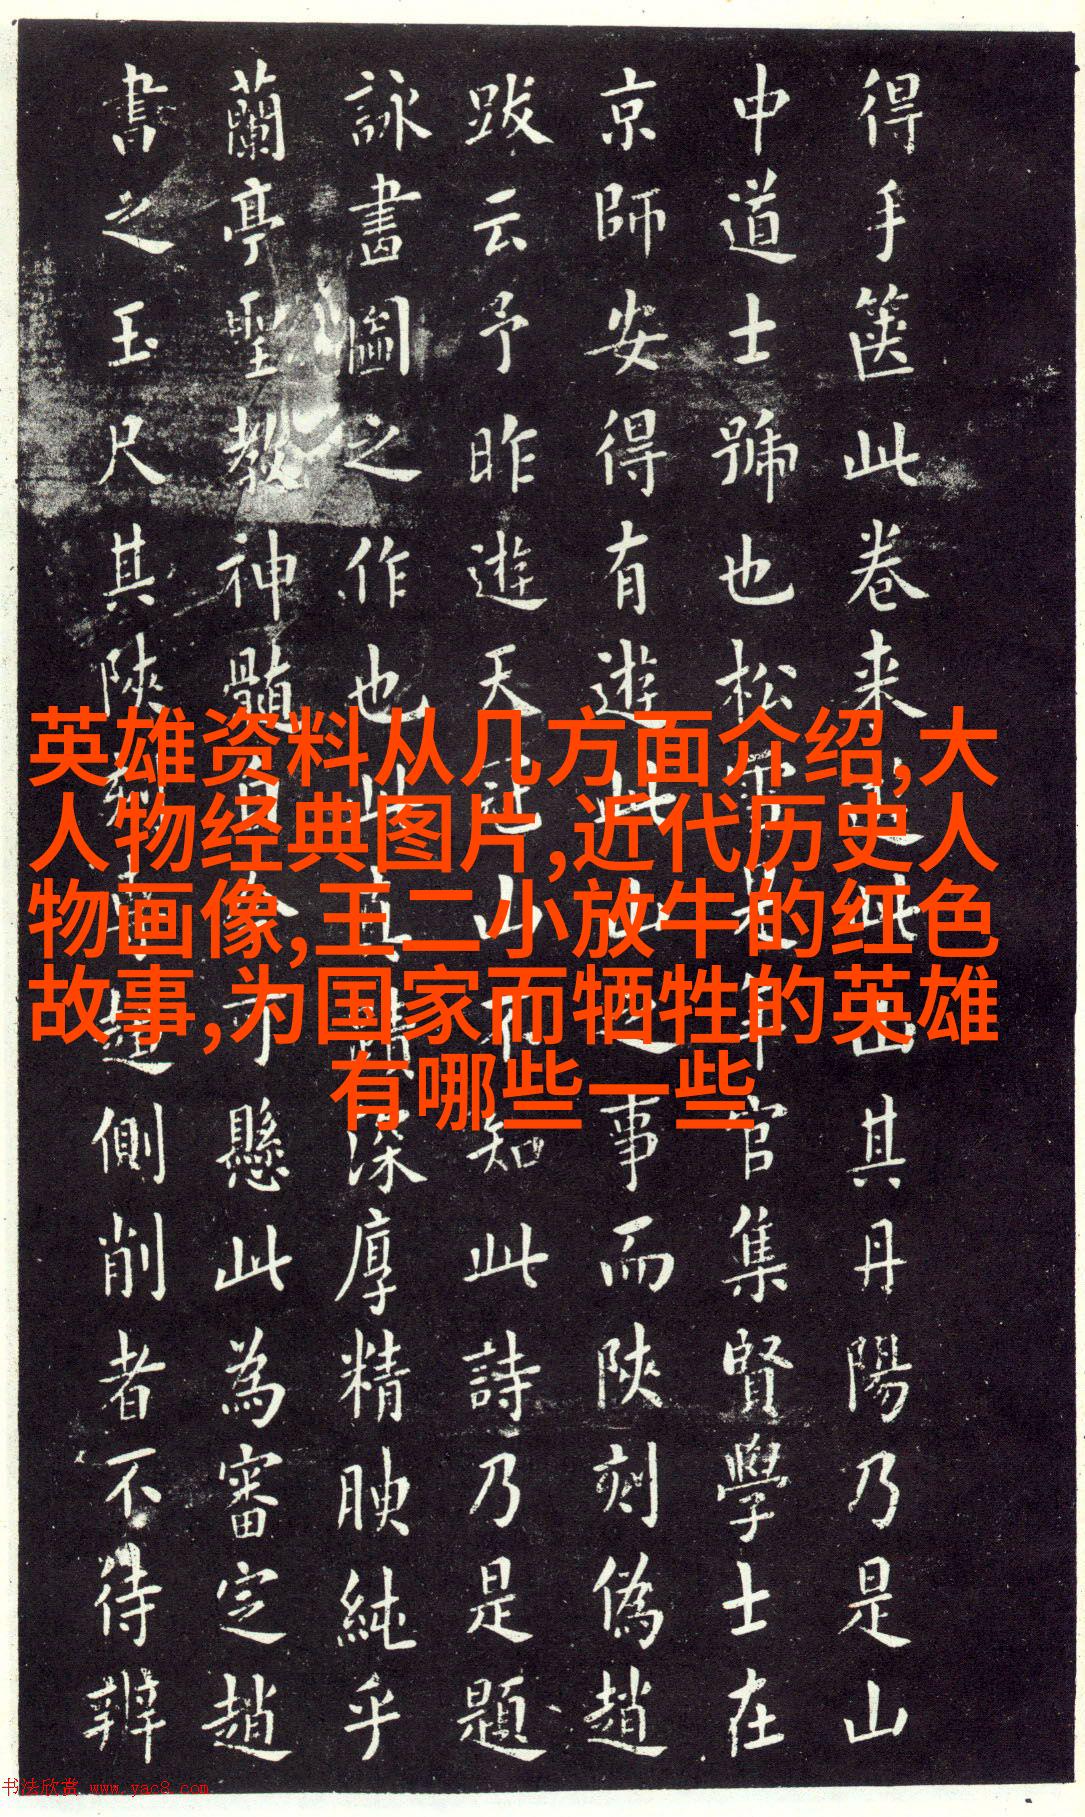 得手篋此卷来此山其丹陽乃是山
中道士號也松雪是年官集賢學士在
京師安得有遊此山之事而陜刻偽趙
跋云予昨遊天冠山不知此詩乃是題
詠畫圖之作也此真深厚精腴純乎
蘭亭聖教神髓自可懸此為審定趙
書之玉尺其陜刻專逞側削者不待辨
英雄资料从几方面介绍,大
人物经典图片,近代历史人
物画像,王二小放牛的红色
故事,为国家而牺牲的英雄
有哪些一些
书法欣赏 www.yac8.com